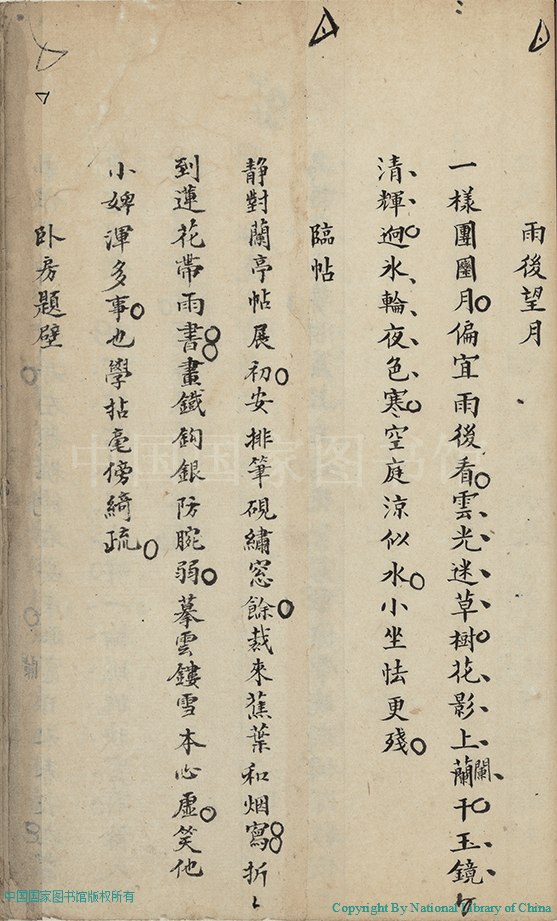 雨後望月
一樣團圞月偏宜雨後看雲光迷草樹花影上蘭闌干玉鏡
清輝迥氷輪夜色寒空庭涼似水小坐怯更殘
臨帖
静對蘭亭帖展初安排筆硯繡窓餘裁來蕉葉和烟寫折
到蓮花帶雨書畫鐵鈎銀防腕弱摹雲鏤雪本心虛笑他
小婢渾多事也學拈毫傍綺疏
卧房題壁
中国国家图书馆
中国国家图书馆版权所有
Copyright By National Library of China